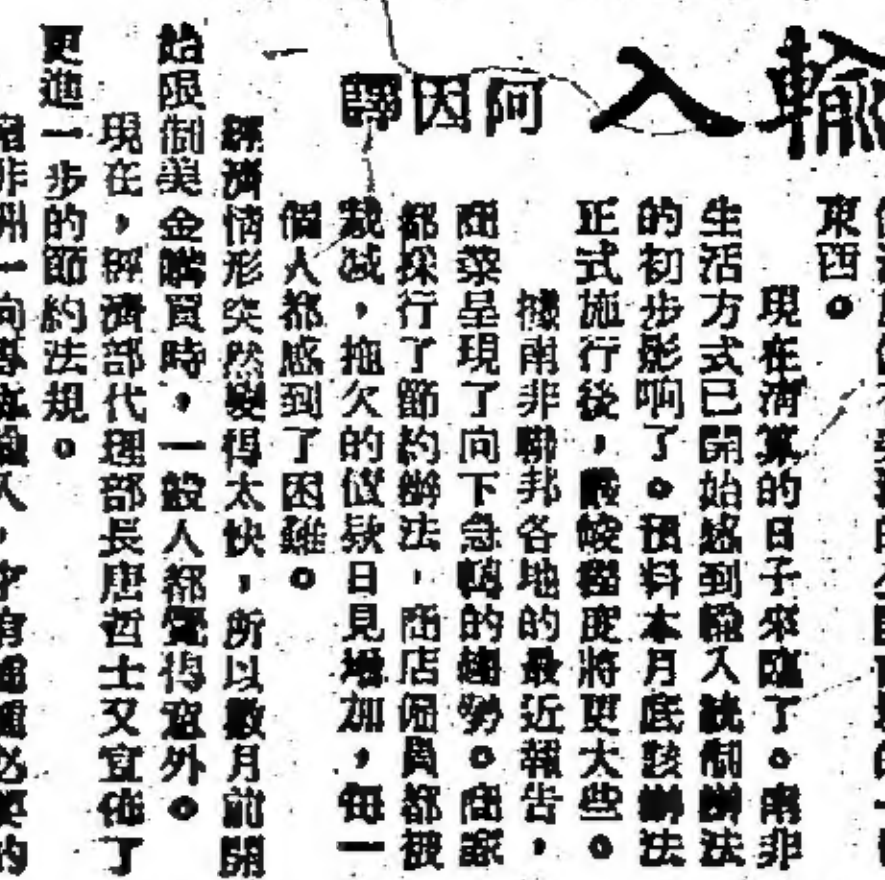 輸入
阿因譯
東西。
現在清算的日子來臨了。南非
生活方式已開始感到輸入統制辦法
的初步影响了。預料本月底該辦法
正式施行後，嚴峻程度將更大些。
據南非聯邦各地的最近報告，
商業呈現了向下急轉的趨勢。商家
都採行了節約辦法，商店僱員都被
裁减，拖欠的債欵日見增加，每一
個人都感到了困難。
經濟情形突然變得太快，所以數月前開
始限制美金購買時，一般人都覺得意外。
現在，經濟部代理部長唐哲士又宣佈了
更進一步的節約法規。
非洲一向
入，才有 必要的